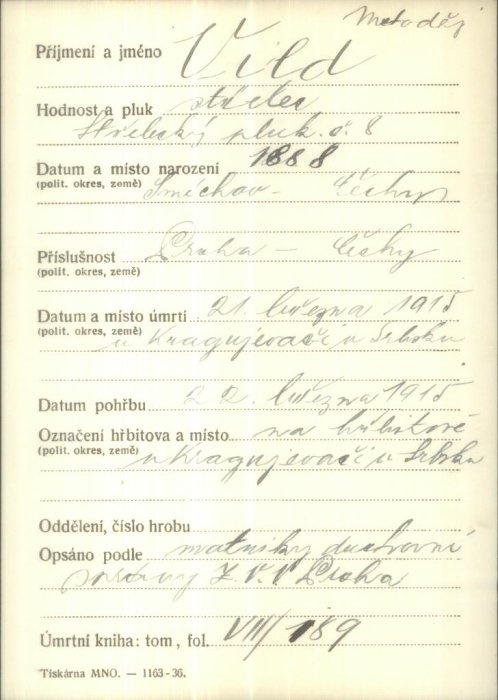 Metoděj
Příjmení a jméno Vild
Hodnost a pluk střelec
Střelecký pluk. č. 8
Datum a místo narození 1888
(polit. okres, země) Smíchov - Čechy
Příslušnost Praha - Čechy
(polit. okres, země)
Datum a místo úmrtí 21. března 1915
(polit. okres, země) v Kragujevači v Srbsku
Datum pohřbu 22. března 1915
Označení hřbitova a místo na hřbitově
(polit. okres, země) v Kragujevači v Srbsku
Oddělení, číslo hrobu
Opsáno podle matriky duchovní
správy Z. V. V. Praha
Úmrtní kniha: tom, fol. VIII/189
Tiskárna MNO. — 1163-36.